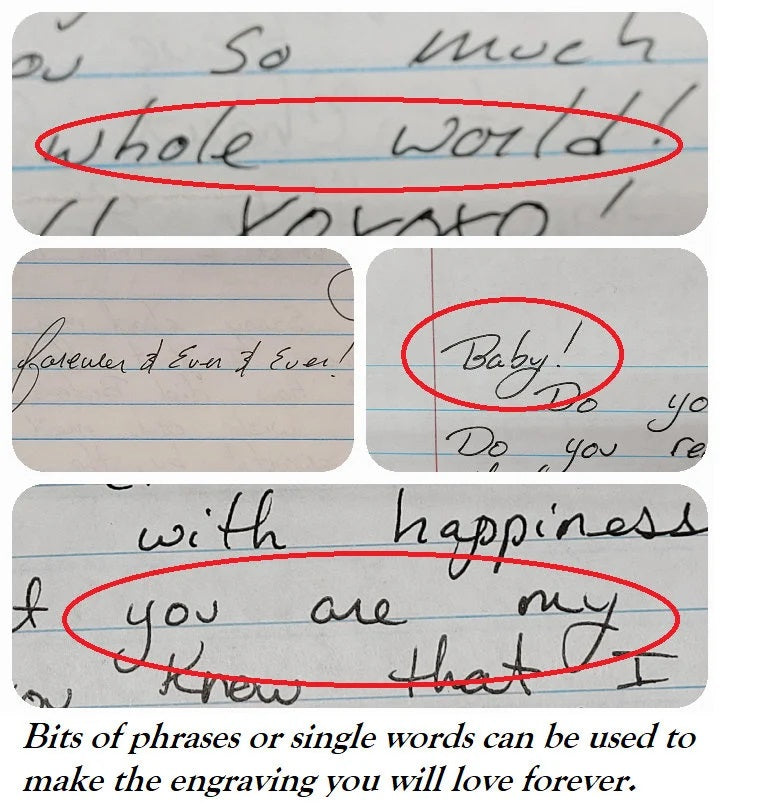 ou so much
whole world!
forever & Ever & Ever!
Baby!
Do yo
Do you re
with happiness
you are my
know that I
Bits of phrases or single words can be used to
make the engraving you will love forever.